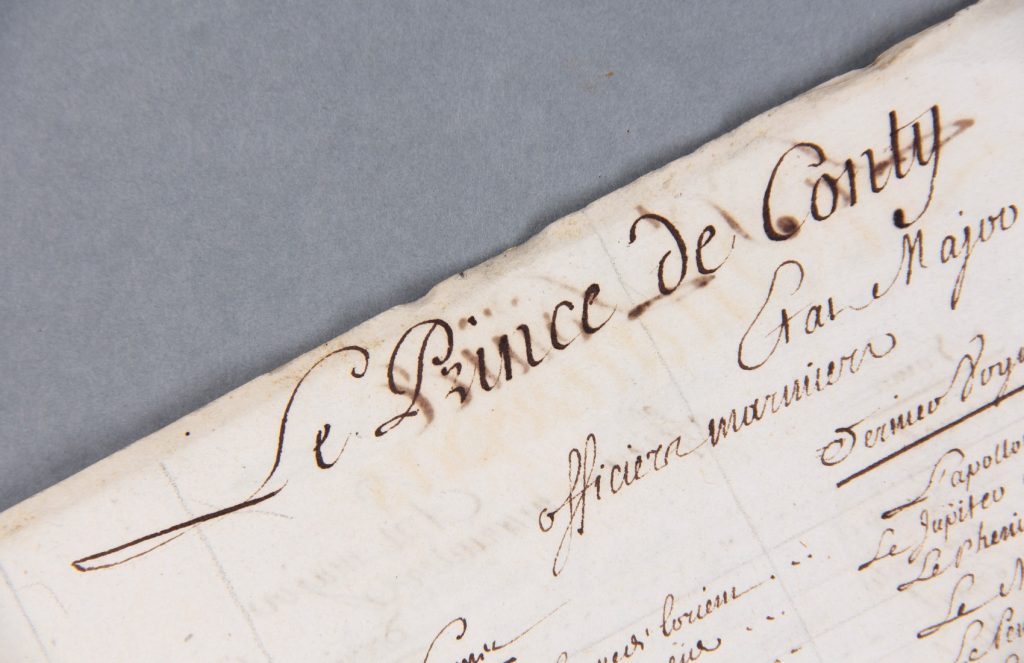 Le Prince de Conty
Etat Major
officiers mariniers
Dernier Voya
L'apollo
Le Jupiter
Le Pheni
Le
lorient
Le